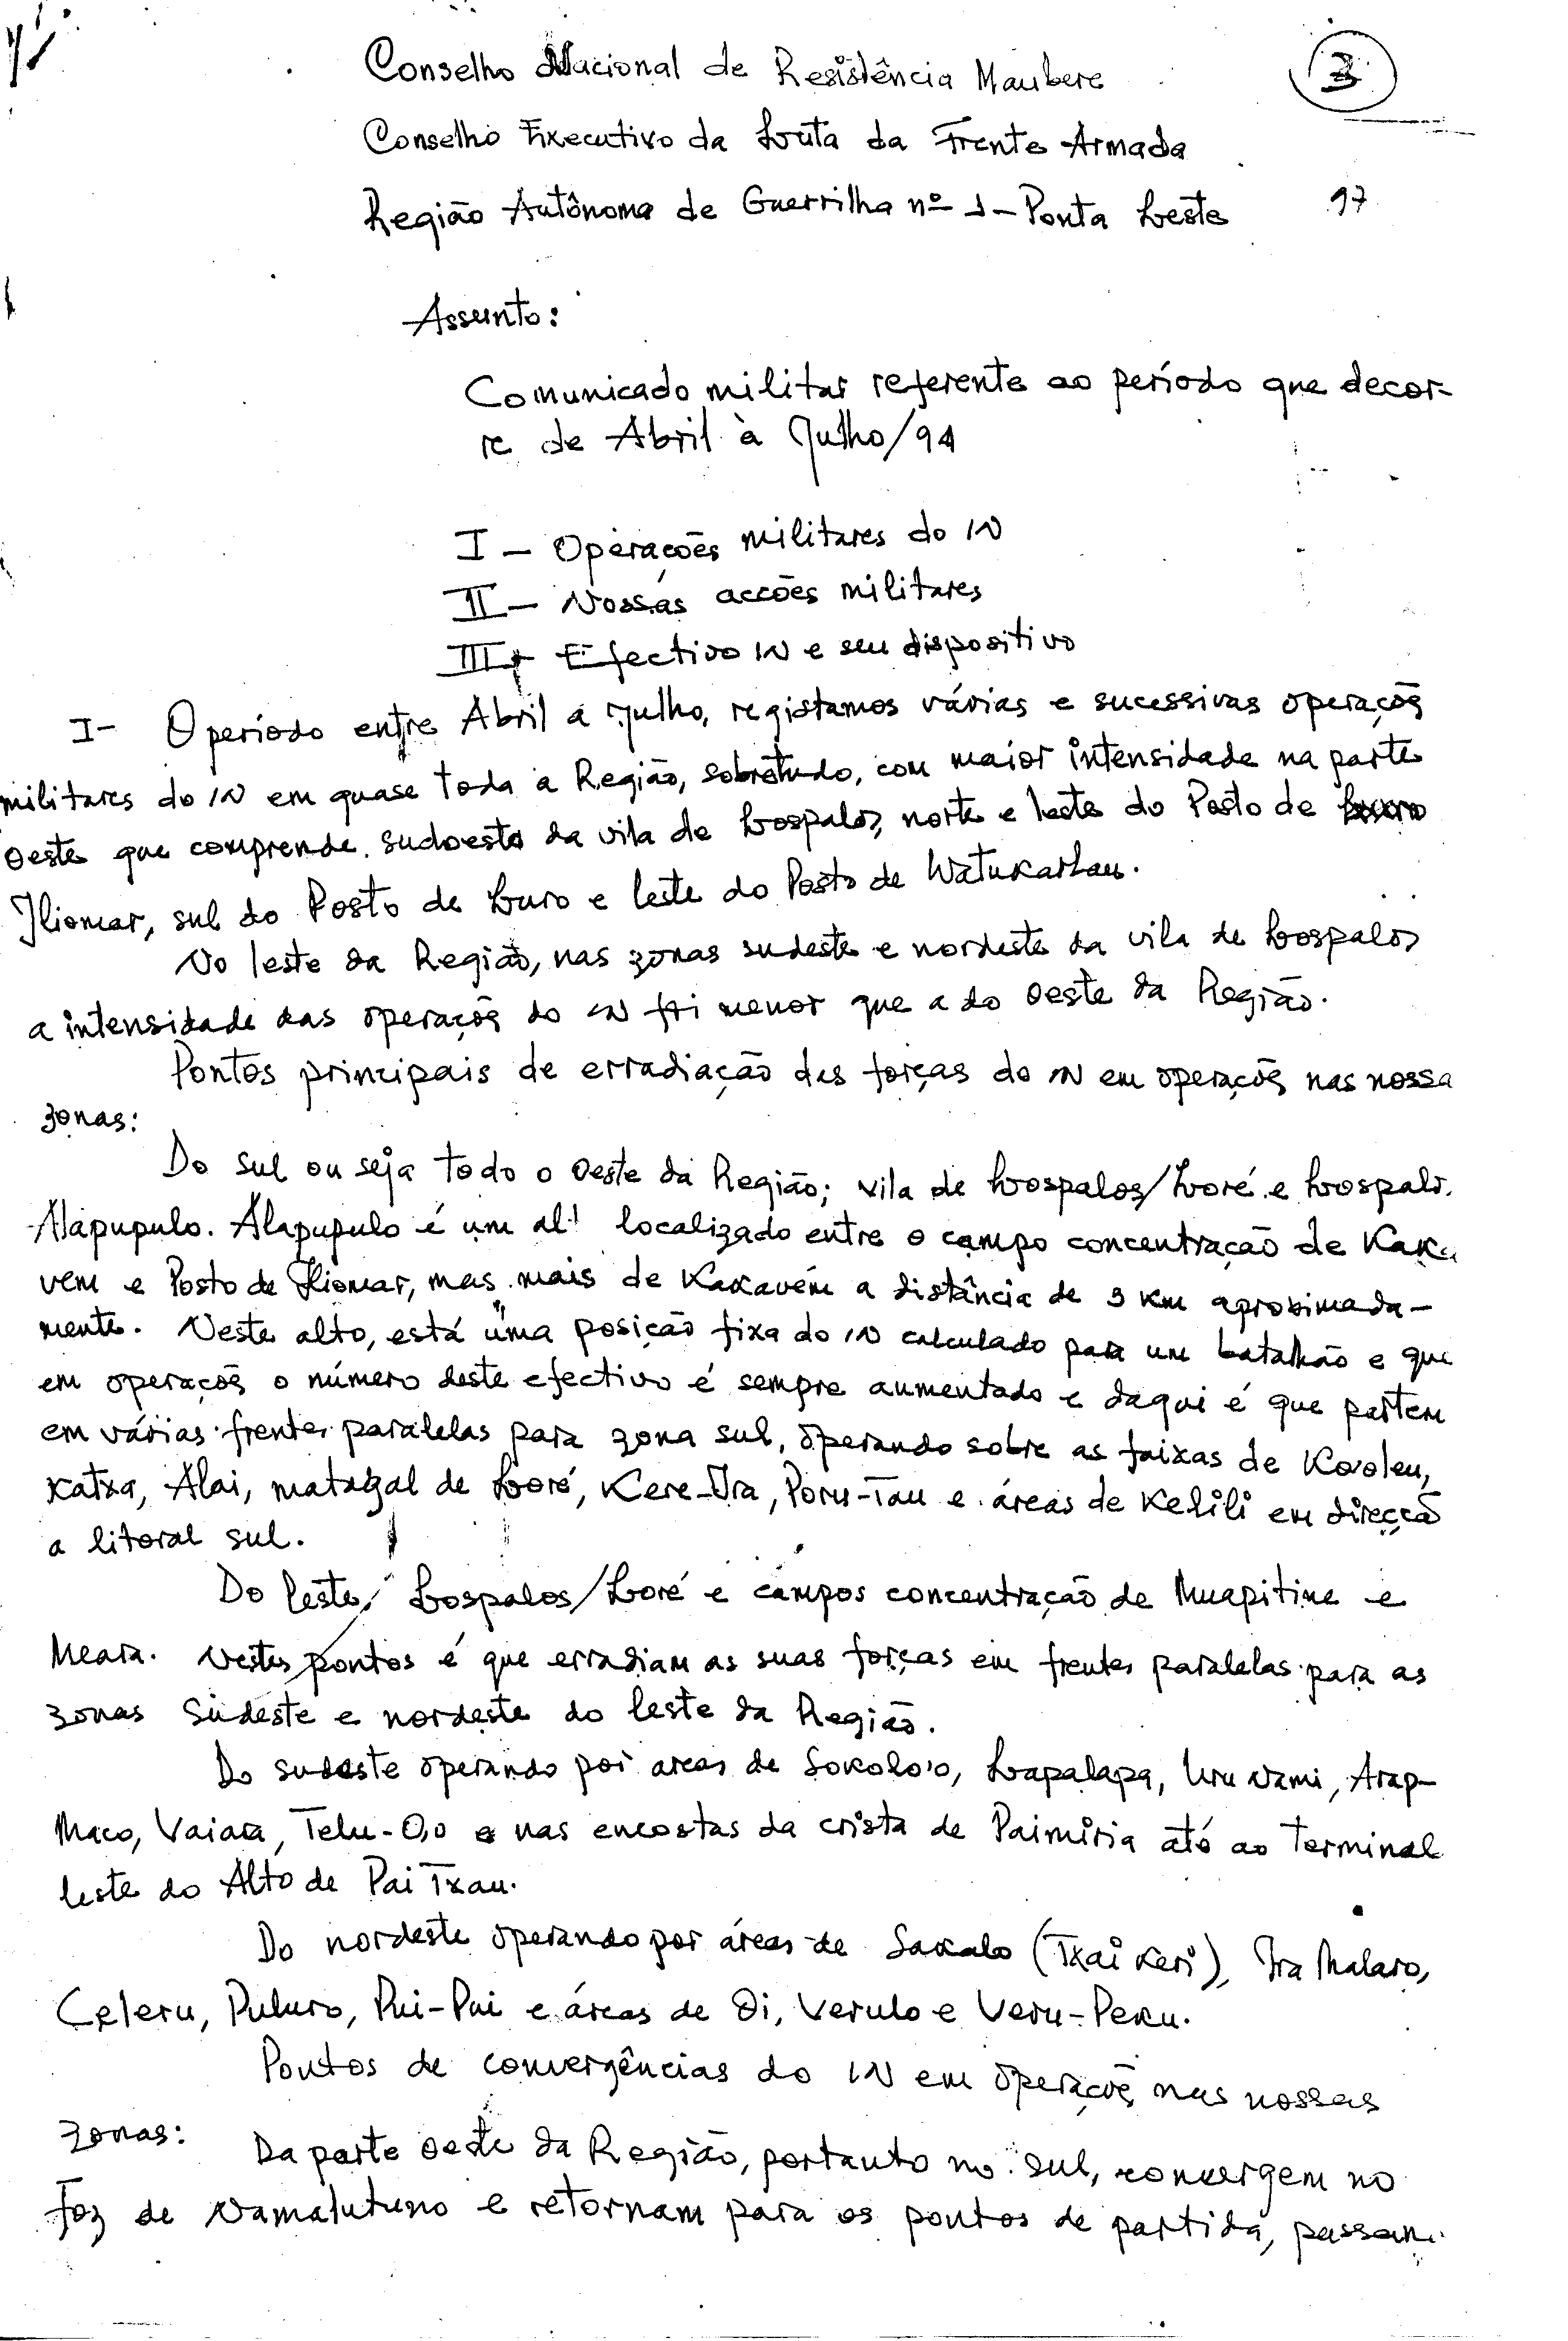 Conselho Nacional de Resistência Maubere
3
Conselho Executivo da Luta da Frente Armada
Região Autônoma de Guerrilha nº 1 - Ponta Leste
97
Assunto:
Comunicado militar referente ao período que decor-
re de Abril à Julho/94
I - Operações militares do IN
II - Nossas accões militares
III - Efectivo IN e seu dispositivo
I- O período entre Abril a Julho, registamos várias e sucessivas operações
militares do IN em quase toda a Região, sobretudo, com maior intensidade na parte
oeste que comprende sudoeste da vila de Lospalos, norte e leste do Posto de
Iliomar, sul do Posto de Luro e leste do Posto de Watukarbau.
No leste da Região, nas zonas sudeste e nordeste da vila de Lospalos
a intensidade das operações do IN foi menor que a do oeste da Região.
Pontos principais de erradiação das forças do IN em operações nas nossa
zonas:
Do sul ou seja todo o oeste da Região; vila de Lospalos/Loré e Lospalos.
Alapupulo. Alapupulo é um alt localizado entre o campo concentração de Kaka
vem e Posto de Iliomar, mas mais de Kakavém a distância de 3 km aproximada-
mente. Neste alto, está uma posição fixa do IN calculado para um batalhão e que
em operações o número deste efectivo é sempre aumentado e daqui é que partem
em várias frentes paralelas para zona sul, operando sobre as faixas de Kovoleu,
Katxa, Alai, matagal de Loré, Kere-Ira, Poru-Tau e áreas de Kelili em direcção
a litoral sul.
Do leste, Lospalos/Loré e campos concentração de Muapitine e
Meara. Nestes pontos é que erradiam as suas forças em frentes paralelas para as
zonas sudeste e nordeste do leste da Região.
Do sudeste operando por areas de Sokolo'o, Lapalapa, Uru Nami, Arap-
Maco, Vaiara, Telu-O,o e nas encostas da crista de Paimiria até ao terminal
leste do Alto de Pai Txau.
Do nordeste operando por áreas de Sakalo (Txai Keri), Ira Malaro,
Celeru, Puluro, Pui-Pui e áreas de Oi, Verulo e Veru-Peku.
Pontos de convergências do IN em operações nas nossas
zonas:
Da parte oeste da Região, portanto no sul, convergem no
foz de Namalutuno e retornam para os pontos de partida, passan